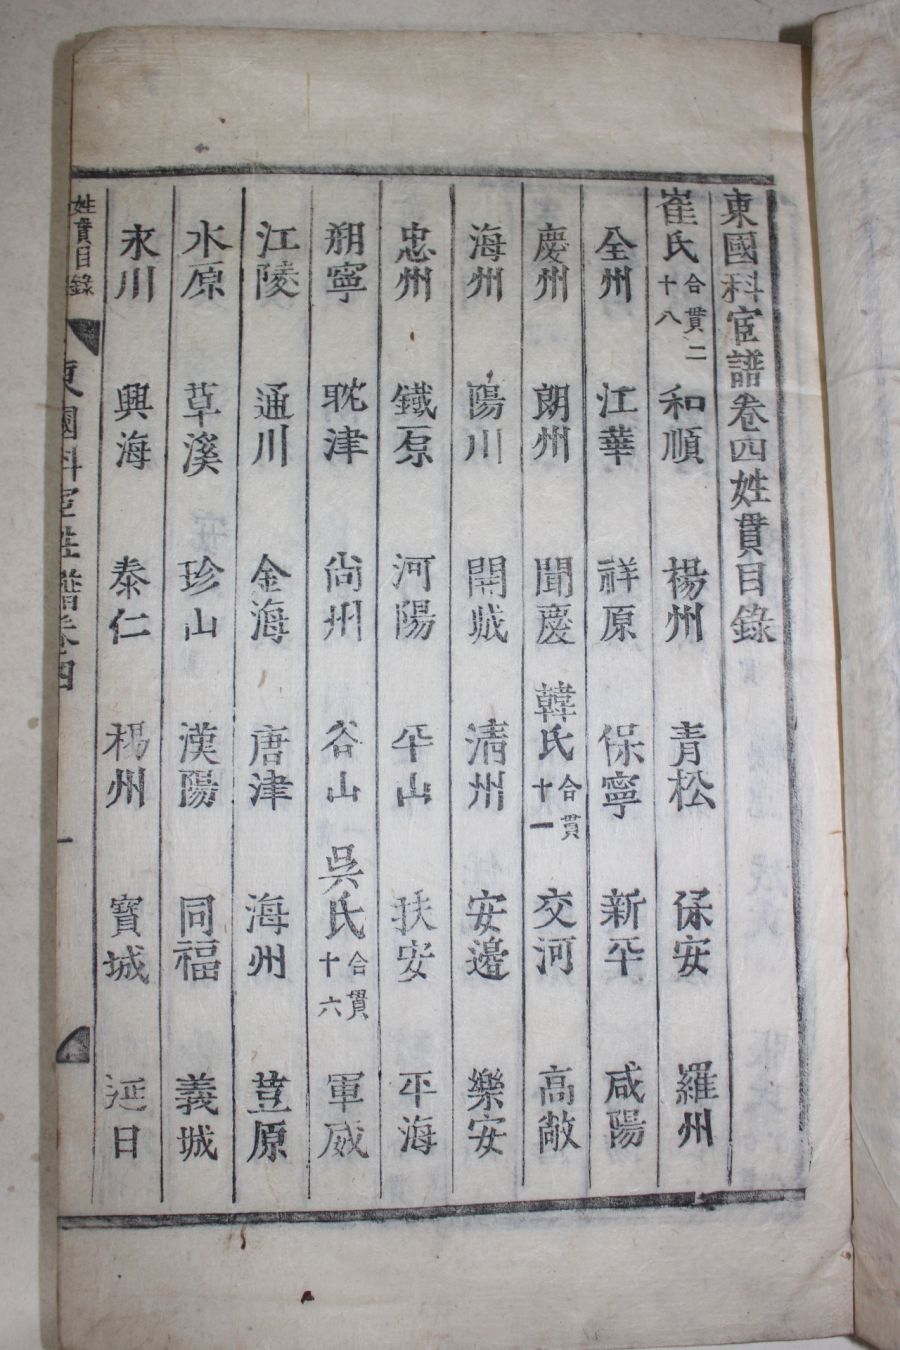 東國科宦譜卷四姓貫目錄
崔氏合貫二十八 和順 楊州 靑松 保安 羅州
全州 江華 祥原 保寧 新平 咸陽
慶州 朗州 聞慶 韓氏合貫十一 交河 高敞
海州 陽川 開城 淸州 安邊 樂安
忠州 鐵原 河陽 平山 扶安 平海
朔寧 耽津 尙州 谷山 吳氏合貫十六 軍威
江陵 通川 金海 唐津 海州 荳原
水原 草溪 珍山 漢陽 同福 義城
永川 興海 泰仁 楊州 寶城 延日
姓貫目錄 東國科宦姓譜卷四 一